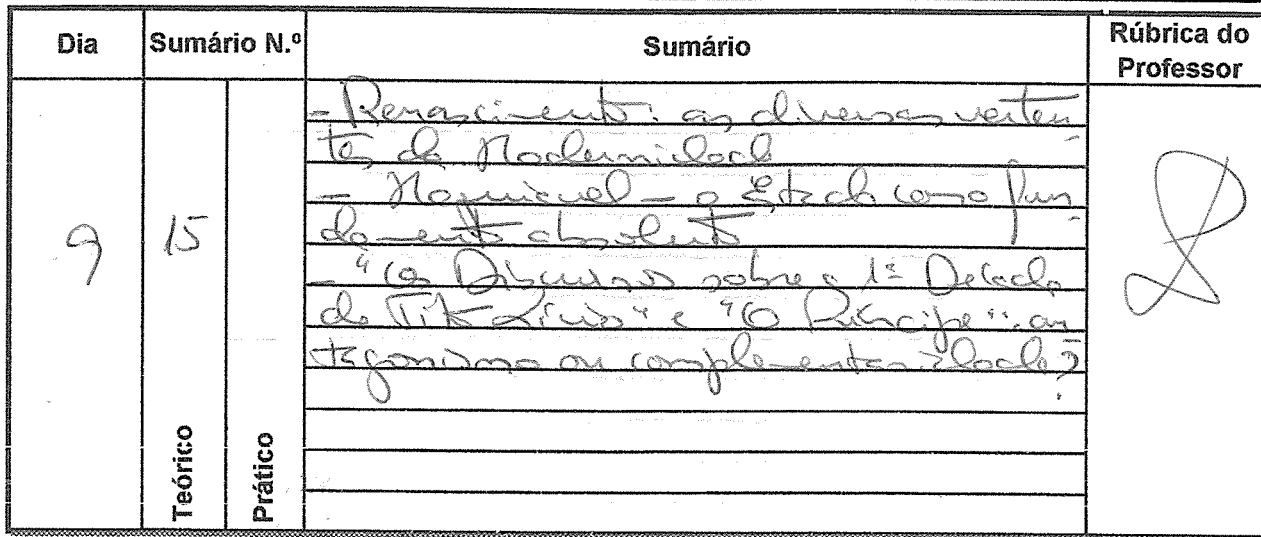 Dia
Sumário N.º
Sumário
Rúbrica do
Professor
9
15
Teórico
Prático
- Renascimento: as diversas verten
tes da Modernidade
- Maquiavel - o Estado como fun
damento absoluto
- "Os Discursos sobre a 1ª Década
de Tito Lívio" e "O Príncipe": an
tagonismo ou complementaridade?